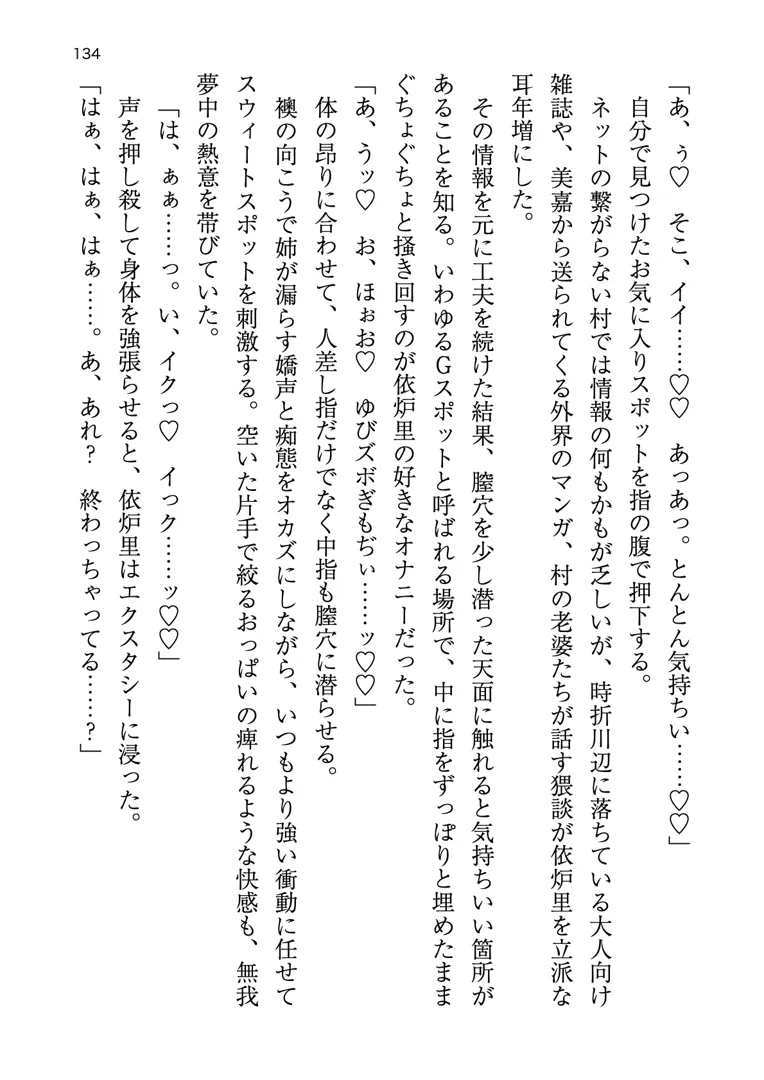 134
「あ、ぅ♡　そこ、イイ……♡♡　あっあっ。とんとん気持ちい……♡♡」
自分で見つけたお気に入りスポットを指の腹で押下する。
ネットの繋がらない村では情報の何もかもが乏しいが、時折川辺に落ちている大人向け
雑誌や、美嘉から送られてくる外界のマンガ、村の老婆たちが話す猥談が依炉里を立派な
耳年増にした。
その情報を元に工夫を続けた結果、膣穴を少し潜った天面に触れると気持ちいい箇所が
あることを知る。いわゆるGスポットと呼ばれる場所で、中に指をずっぽりと埋めたまま
ぐちょぐちょと掻き回すのが依炉里の好きなオナニーだった。
「あ、うッ♡　お、ほぉお♡　ゆびズボぎもぢぃ……ッ♡♡」
体の昂りに合わせて、人差し指だけでなく中指も膣穴に潜らせる。
襖の向こうで姉が漏らす嬌声と痴態をオカズにしながら、いつもより強い衝動に任せて
スウィートスポットを刺激する。空いた片手で絞るおっぱいの痺れるような快感も、無我
夢中の熱意を帯びていた。
「は、ぁぁ……っ。い、イクっ♡　イっク……ッ♡♡」
声を押し殺して身体を強張らせると、依炉里はエクスタシーに浸った。
「はぁ、はぁ、はぁ……。あ、あれ？　終わっちゃってる……？」